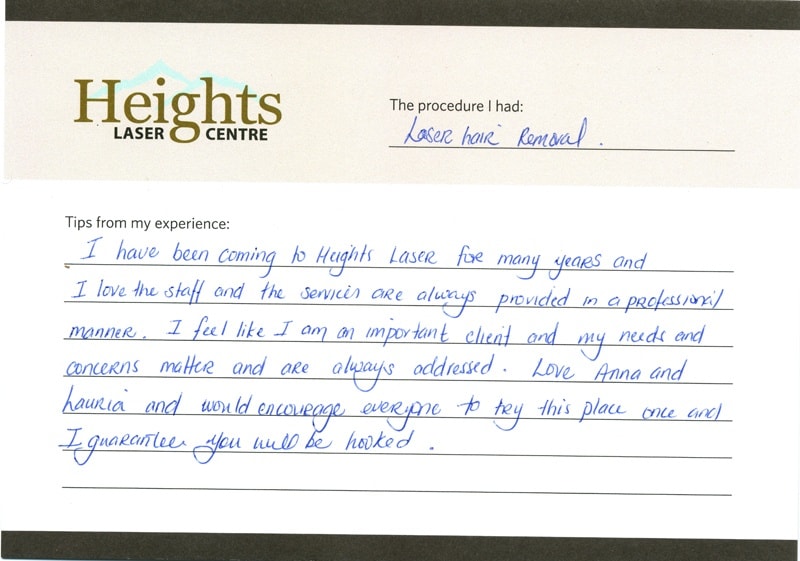 Heights
LASER CENTRE
The procedure I had:
Laser hair Removal.
Tips from my experience:
I have been coming to Heights Laser for many years and
I love the staff and the services are always provided in a professional
manner. I feel like I am an important client and my needs and
concerns matter and are always addressed. Love Anna and
Lauria and would encourage everyone to try this place once and
I guarantee you will be hooked.